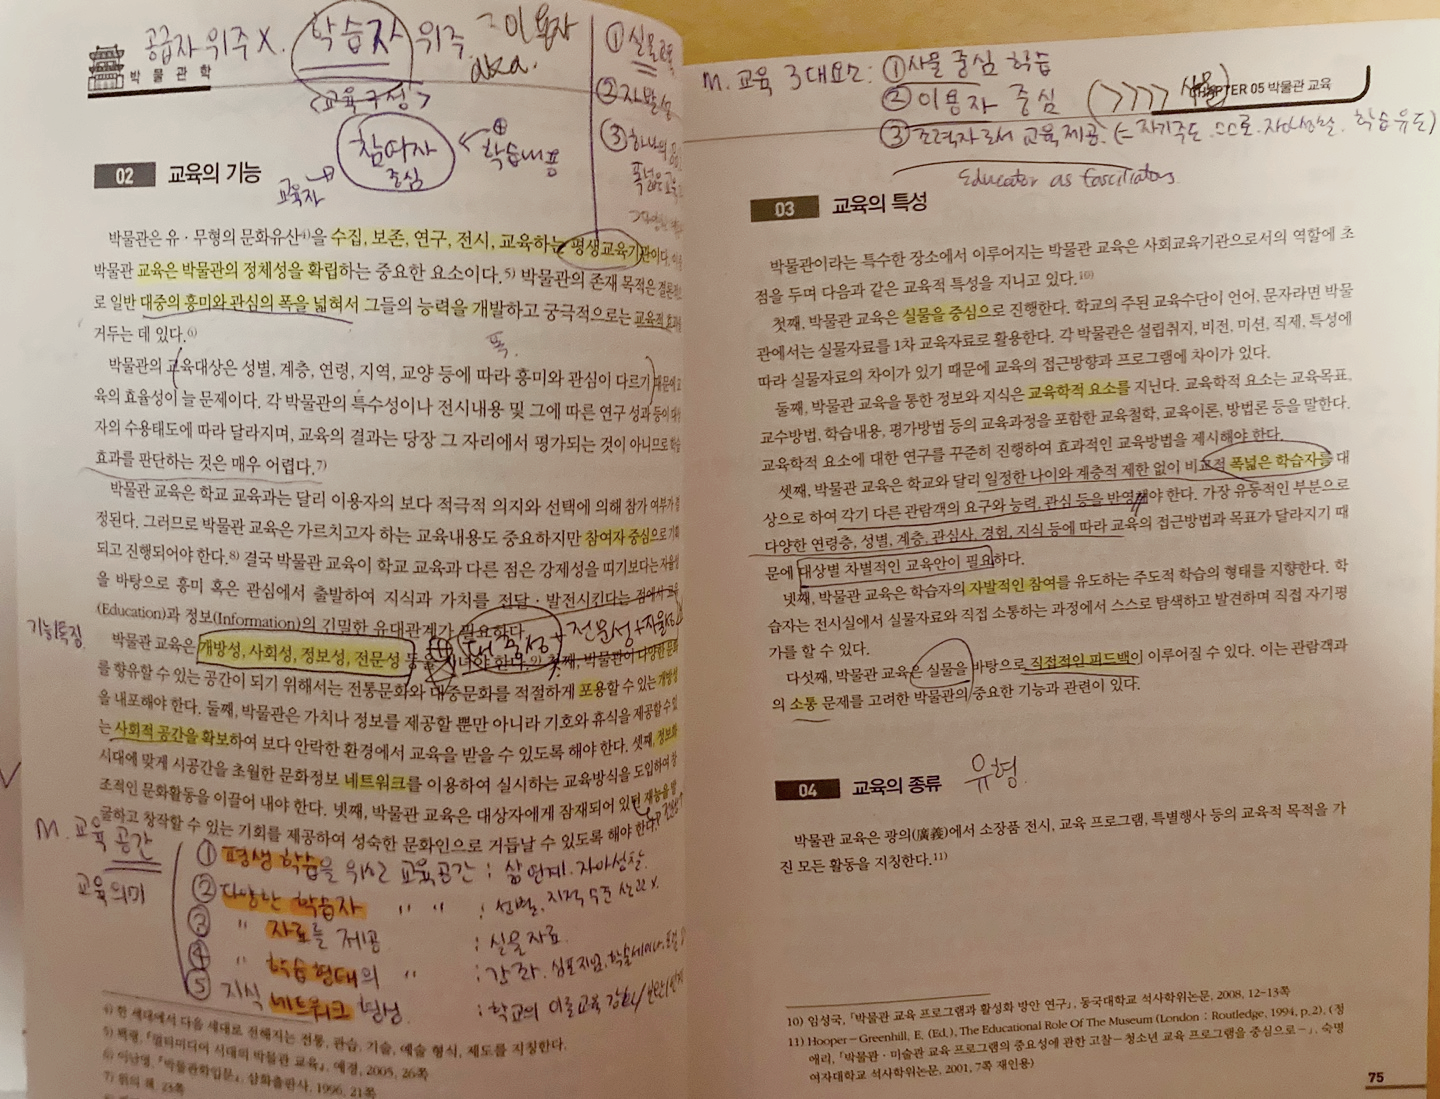 공급자 위주 X. 학습자 위주 = 이용자
aka.
박물관학
<교육구성>
참여자 중심 ← ⊕ 학습내용
교육자
① 실물교육
②
③ 하나의
02 교육의 기능
박물관은 유·무형의 문화유산4)을 수집, 보존, 연구, 전시, 교육하는 평생교육기관이다.
박물관 교육은 박물관의 정체성을 확립하는 중요한 요소이다.5) 박물관의 존재 목적은
로 일반 대중의 흥미와 관심의 폭을 넓혀서 그들의 능력을 개발하고 궁극적으로는 교육적 효과를
거두는 데 있다.6)
폭.
박물관의 교육대상은 성별, 계층, 연령, 지역, 교양 등에 따라 흥미와 관심이 다르기 때문에 교
육의 효율성이 늘 문제이다. 각 박물관의 특수성이나 전시내용 및 그에 따른 연구 성과 등이
자의 수용태도에 따라 달라지며, 교육의 결과는 당장 그 자리에서 평가되는 것이 아니므로
효과를 판단하는 것은 매우 어렵다.7)
박물관 교육은 학교 교육과는 달리 이용자의 보다 적극적 의지와 선택에 의해 참가 여부가
정된다. 그러므로 박물관 교육은 가르치고자 하는 교육내용도 중요하지만 참여자 중심으로 기획
되고 진행되어야 한다.8) 결국 박물관 교육이 학교 교육과 다른 점은 강제성을 띠기보다는 자율성
을 바탕으로 흥미 혹은 관심에서 출발하여 지식과 가치를 전달·발전시킨다는 점에서 교육
(Education)과 정보(Information)의 긴밀한 유대관계가 필요하다.
기능특징 ⊕ 대중성 + 전문성 + 자율성
박물관 교육은 개방성, 사회성, 정보성, 전문성 등을 지녀야 한다.9) 첫째, 박물관이 다양한 문화
를 향유할 수 있는 공간이 되기 위해서는 전통문화와 대중문화를 적절하게 포용할 수 있는 개방성
을 내포해야 한다. 둘째, 박물관은 가치나 정보를 제공할 뿐만 아니라 기호와 휴식을 제공할 수 있
는 사회적 공간을 확보하여 보다 안락한 환경에서 교육을 받을 수 있도록 해야 한다. 셋째, 정보화
시대에 맞게 시공간을 초월한 문화정보 네트워크를 이용하여 실시하는 교육방식을 도입하여 창
조적인 문화활동을 이끌어 내야 한다. 넷째, 박물관 교육은 대상자에게 잠재되어 있던 재능을 발
굴하고 창작할 수 있는 기회를 제공하여 성숙한 문화인으로 거듭날 수 있도록 해야 한다.
M. 교육 공간
교육의미
① 평생 학습을 위한 교육공간 : 삶 연계. 자아성찰.
② 다양한 학습자 〃 〃 : 성별, 지적 수준 상관 X.
③ 〃 자료를 제공 : 실물자료.
④ 〃 학습형태의 〃 : 강좌. 심포지엄. 학술세미나.
⑤ 지식 네트워크 형성. : 학교의 이론교육
4) 한 세대에서 다음 세대로 전해지는 전통, 관습, 기술, 예술 형식, 제도를 지칭한다.
5) 백령, 「멀티미디어 시대의 박물관 교육」, 예경, 2005, 26쪽
6) 이난영, 「박물관학입문」, 삼화출판사, 1996, 21쪽
7) 위의 책, 23쪽
M. 교육 3대요소: ① 사물 중심 학습
② 이용자 중심 (>>>> 사물)
③ 조력자로서 교육 제공. (= 자기주도. 스스로. 자아성찰. 학습 유도)
Educator as fascilitators.
CHAPTER 05 박물관 교육
03 교육의 특성
박물관이라는 특수한 장소에서 이루어지는 박물관 교육은 사회교육기관으로서의 역할에 초
점을 두며 다음과 같은 교육적 특성을 지니고 있다.10)
첫째, 박물관 교육은 실물을 중심으로 진행한다. 학교의 주된 교육수단이 언어, 문자라면 박물
관에서는 실물자료를 1차 교육자료로 활용한다. 각 박물관은 설립취지, 비전, 미션, 직제, 특성에
따라 실물자료의 차이가 있기 때문에 교육의 접근방향과 프로그램에 차이가 있다.
둘째, 박물관 교육을 통한 정보와 지식은 교육학적 요소를 지닌다. 교육학적 요소는 교육목표,
교수방법, 학습내용, 평가방법 등의 교육과정을 포함한 교육철학, 교육이론, 방법론 등을 말한다.
교육학적 요소에 대한 연구를 꾸준히 진행하여 효과적인 교육방법을 제시해야 한다.
셋째, 박물관 교육은 학교와 달리 일정한 나이와 계층적 제한 없이 비교적 폭넓은 학습자를 대
상으로 하여 각기 다른 관람객의 요구와 능력, 관심 등을 반영해야 한다. 가장 유동적인 부분으로
다양한 연령층, 성별, 계층, 관심사, 경험, 지식 등에 따라 교육의 접근방법과 목표가 달라지기 때
문에 대상별 차별적인 교육안이 필요하다.
넷째, 박물관 교육은 학습자의 자발적인 참여를 유도하는 주도적 학습의 형태를 지향한다. 학
습자는 전시실에서 실물자료와 직접 소통하는 과정에서 스스로 탐색하고 발견하며 직접 자기평
가를 할 수 있다.
다섯째, 박물관 교육은 실물을 바탕으로 직접적인 피드백이 이루어질 수 있다. 이는 관람객과
의 소통 문제를 고려한 박물관의 중요한 기능과 관련이 있다.
04 교육의 종류 유형.
박물관 교육은 광의(廣義)에서 소장품 전시, 교육 프로그램, 특별행사 등의 교육적 목적을 가
진 모든 활동을 지칭한다.11)
10) 임성국, 「박물관 교육 프로그램과 활성화 방안 연구」, 동국대학교 석사학위논문, 2008, 12-13쪽
11) Hooper-Greenhill, E. (Ed.), The Educational Role Of The Museum (London : Routledge, 1994, p.2), (정
애리, 「박물관·미술관 교육 프로그램의 중요성에 관한 고찰-청소년 교육 프로그램을 중심으로-」, 숙명
여자대학교 석사학위논문, 2001, 7쪽 재인용)
75